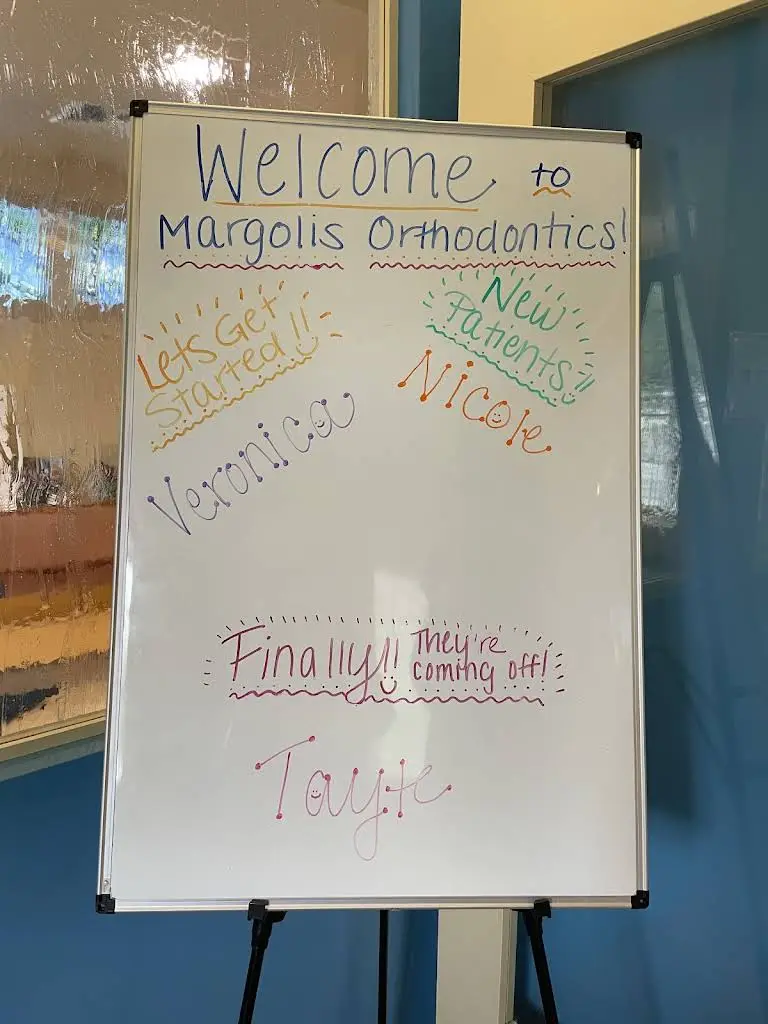 Welcome to
Margolis Orthodontics!
Lets Get
Started!!
Veronica
New
Patients!!
Nicole
Finally!! They're
coming off!
Tayte